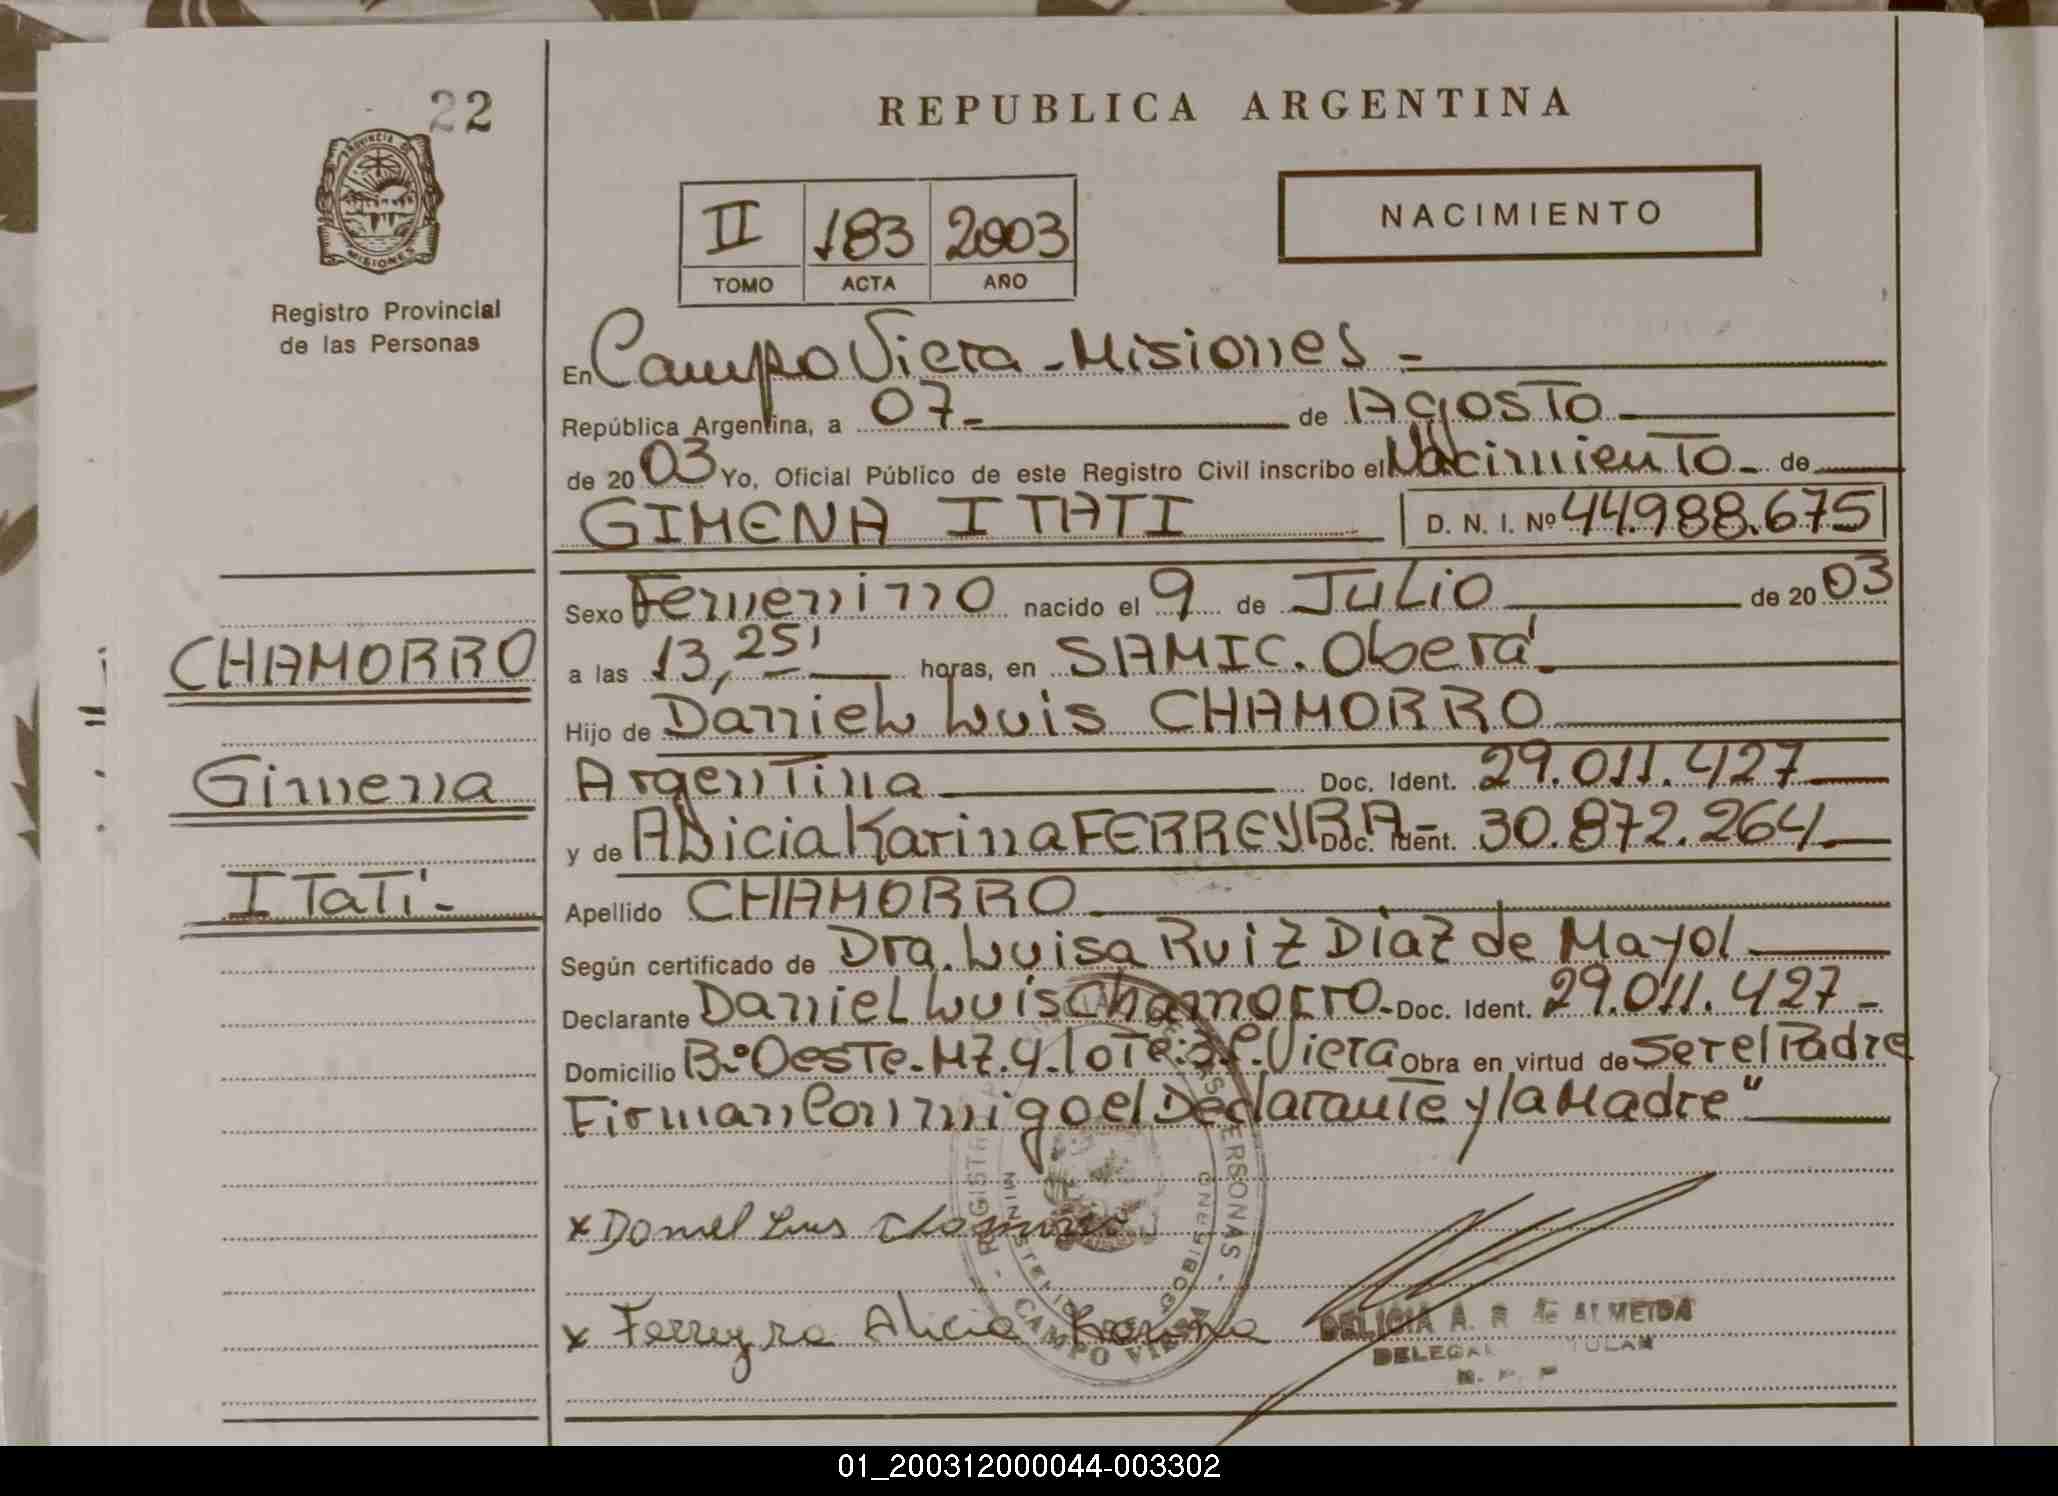 22
REPUBLICA ARGENTINA
PROVINCIA DE
MISIONES
Registro Provincial
de las Personas
II 183 2003
TOMO ACTA AÑO
NACIMIENTO
En Campo Viera - Misiones -
República Argentina, a 07- de Agosto
de 2003 Yo, Oficial Público de este Registro Civil inscribo el Nacimiento - de
GIMENA ITATI D. N. I. Nº 44.988.675
Sexo Femenino nacido el 9 de Julio de 2003
CHAMORRO
a las 13,25' horas, en SAMIC. Oberá -
Hijo de Daniel Luis CHAMORRO
Gimena
Argentina Doc. Ident. 29.011.427
y de Alicia Karina FERREYRA - Doc. Ident. 30.872.264
Itatí -
Apellido CHAMORRO
Según certificado de Dra. Luisa Ruiz Diaz de Mayol
Declarante Daniel Luis Chamorro - Doc. Ident. 29.011.427 -
Domicilio Bº Oeste - Mz. 4. lote: 3 C. Viera Obra en virtud de ser el Padre
Firman Conmigo el Declarante y la Madre"
x Daniel Luis Chamorro
x Ferreyra Alicia Karina
PERSONAS - CAMPO VIERA
MINISTERIO GOBIERNO
DELICIA A. R. de ALMEIDA
01_200312000044-003302